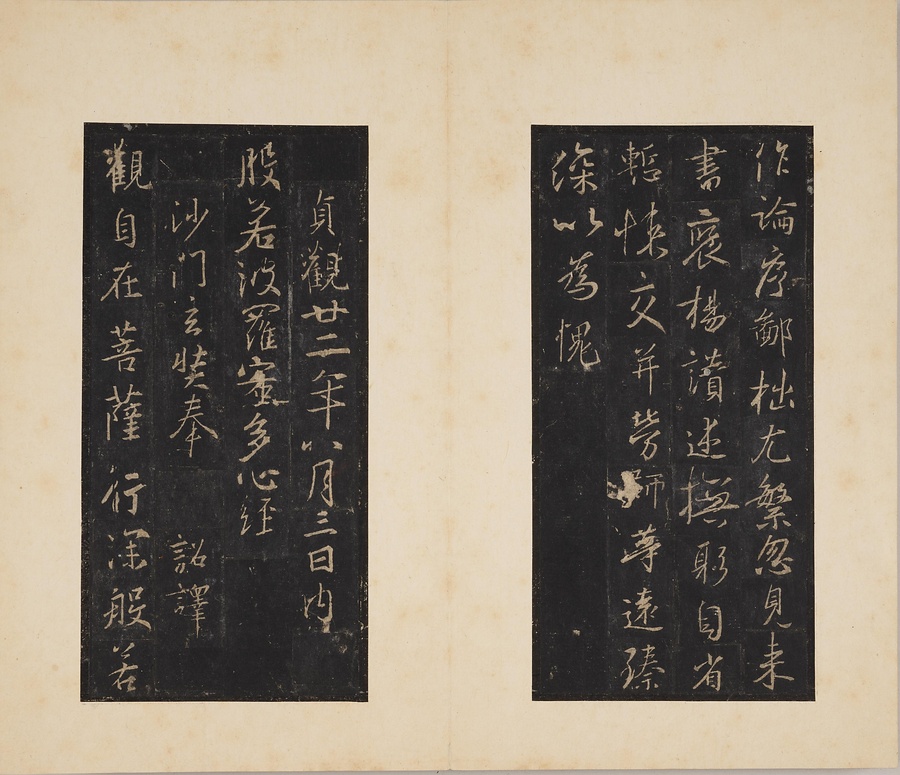 作論序鄙拙尤繁忽見来
書褒揚讃述撫躬自省
慙悚交并勞師等遠臻
深以為愧
貞觀廿二年八月三日内
般若波羅蜜多心經
沙門玄奘奉 詔譯
觀自在菩薩行深般若